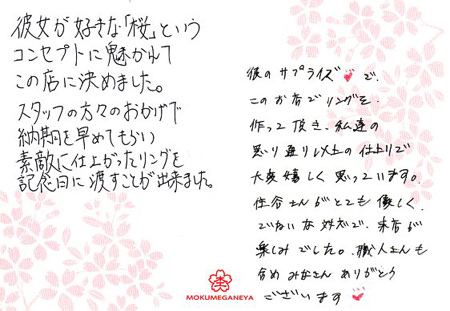 彼女が好きな「桜」という
コンセプトに魅かれて
この店に決めました。
スタッフの方々のおかげで
納期を早めてもらい
素敵に仕上がったリングを
記念日に渡すことが出来ました。
彼のサプライズで、
このお店でリングを
作って頂き、私達の
思い通り以上の仕上りで
大変嬉しく思っています。
住谷さんがとても優しく、
ていねいな対応で、来店が
楽しみでした。職人さんも
含めみなさんありがとう
ございます
MOKUMEGANEYA